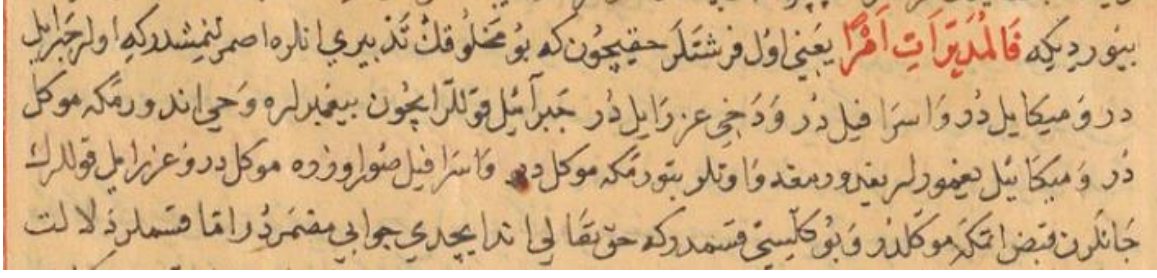 بیوردیکه فَالْمُدَبِّرَاتِ اَمْرًا یعنی اول فرشتلر حقیچون که بو مخلوقك تدبیری انلره اصمرلنمشدرکه اولر جبرایل
در و میکایل دُر وَاسرافیل دُر وَدَخی عزرایل دُر جبرآئیل قوللر ایچون بیغمبرلره وَحی اندورمکه موکل
دُر وَ میکائیل یغمورلر یغدورمغه وَاوتلر بتورمکه موکل در وَاسرافیل صور اوزره موکل در و عزرایل قوللرك
جانلرن قبض اتمکه موکلدُر وَبو کلّیسی قسمدرکه حق تعالی اندایچدی جوابی مضمردُر امّا قسملر دلالت